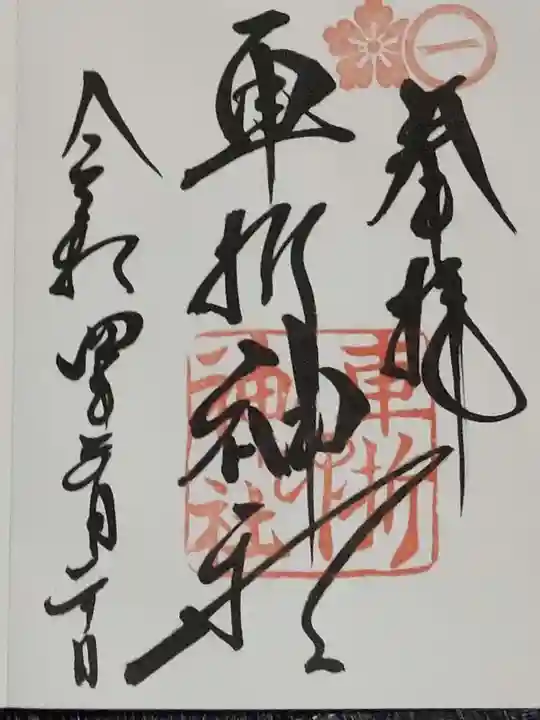 奉拝
車折神社
令和四年五月二十日
一
車折
神社